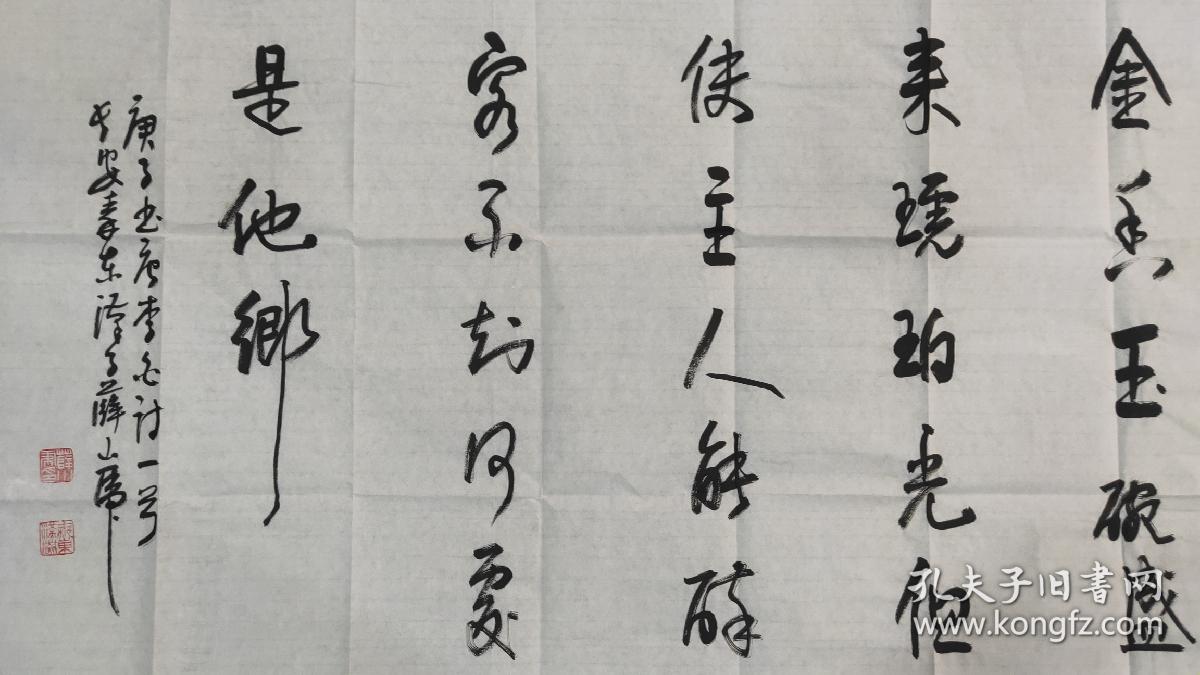 金香玉碗盛
来琥珀光但
使主人能醉
客不知何處
是他鄉
庚子书唐李白诗一首
长安秦东漢子薛山虎
孔夫子旧书网
www.kongfz.com